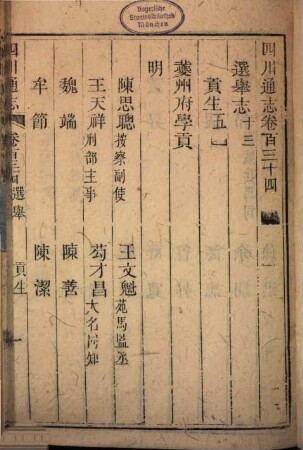 Bayerische
Staatsbibliothek
München
四川通志卷百三十四
選舉志十三
貢生五
夔州府學貢
明
陳思聰按察副使 王文魁苑馬監丞
王天祥刑部主事 芶才昌大名同知
魏端 陳善
牟節 陳潔
四川通志 卷百三十四選舉 貢生